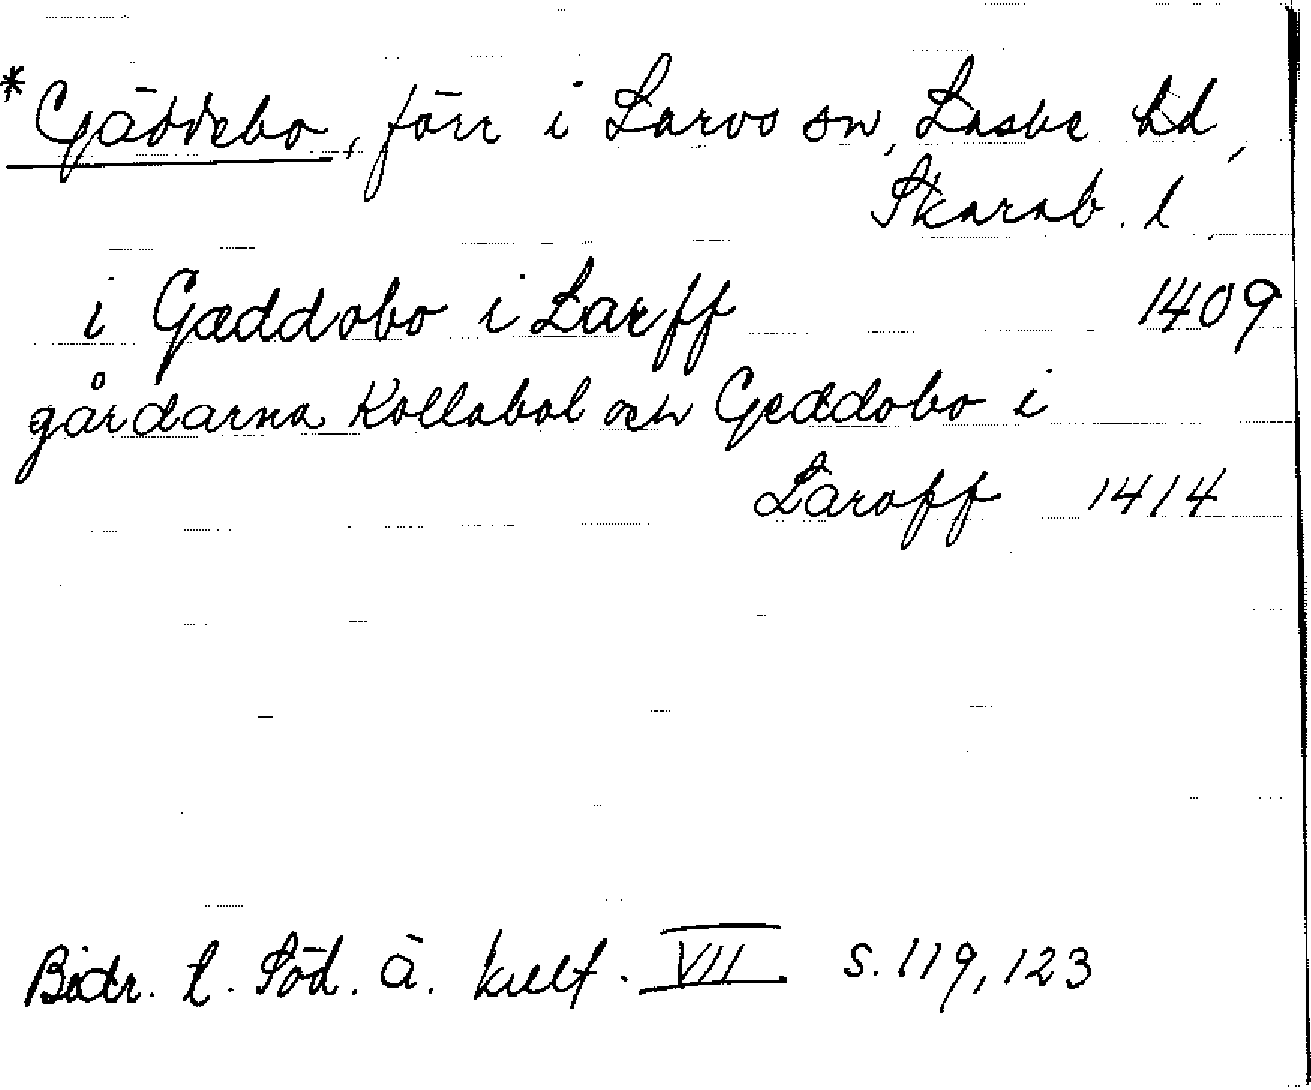 *Gäddebo, förr i Larvs sn, Laske hd,
Skarab. l
i Gæddobo i Larff 1409
gårdarna Kollabol och Geddobo i
Laroff 1414
Bidr. t. Söd. Ä. kult. VII s. 119, 123